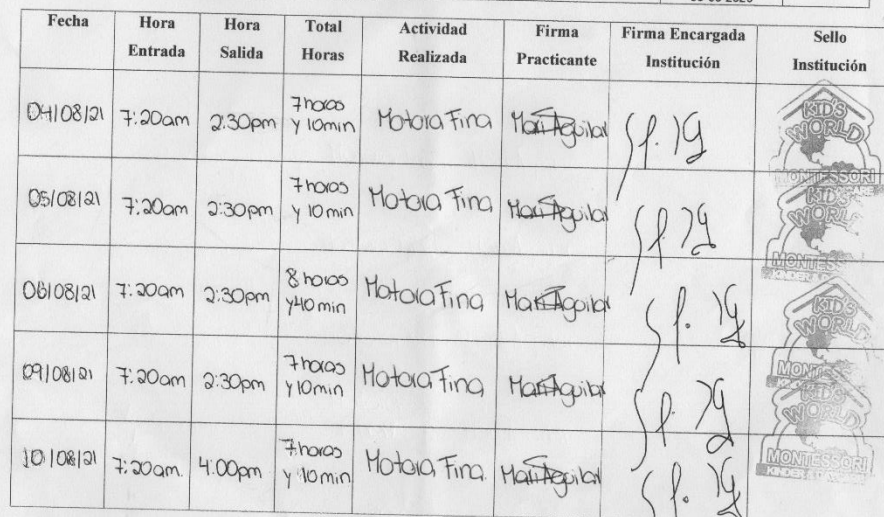 Fecha Hora Entrada Hora Salida Total Horas Actividad Realizada Firma Practicante Firma Encargada Institución Sello Institución
04/08/21 7:20am 2:30pm 7 horas y 10min Motora Fina Mari Aguilar KID'S WORLD MONTESSORI
05/08/21 7:20am 2:30pm 7 horas y 10 min Motora Fina Mari Aguilar KID'S WORLD MONTESSORI
06/08/21 7:20am 2:30pm 8 horas y 40 min Motora Fina Mari Aguilar KID'S WORLD MONTESSORI
09/08/21 7:20am 2:30pm 7 horas y 10min Motora Fina Mari Aguilar KID'S WORLD
10/08/21 7:20am. 4:00pm 7 horas y 10min Motora Fina. Mari Aguilar MONTESSORI